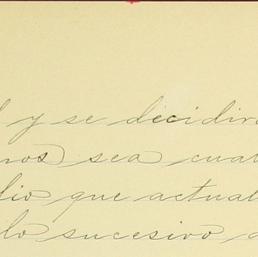 y se decidir
nos) sea cual
dio que actual
lo sucesivo